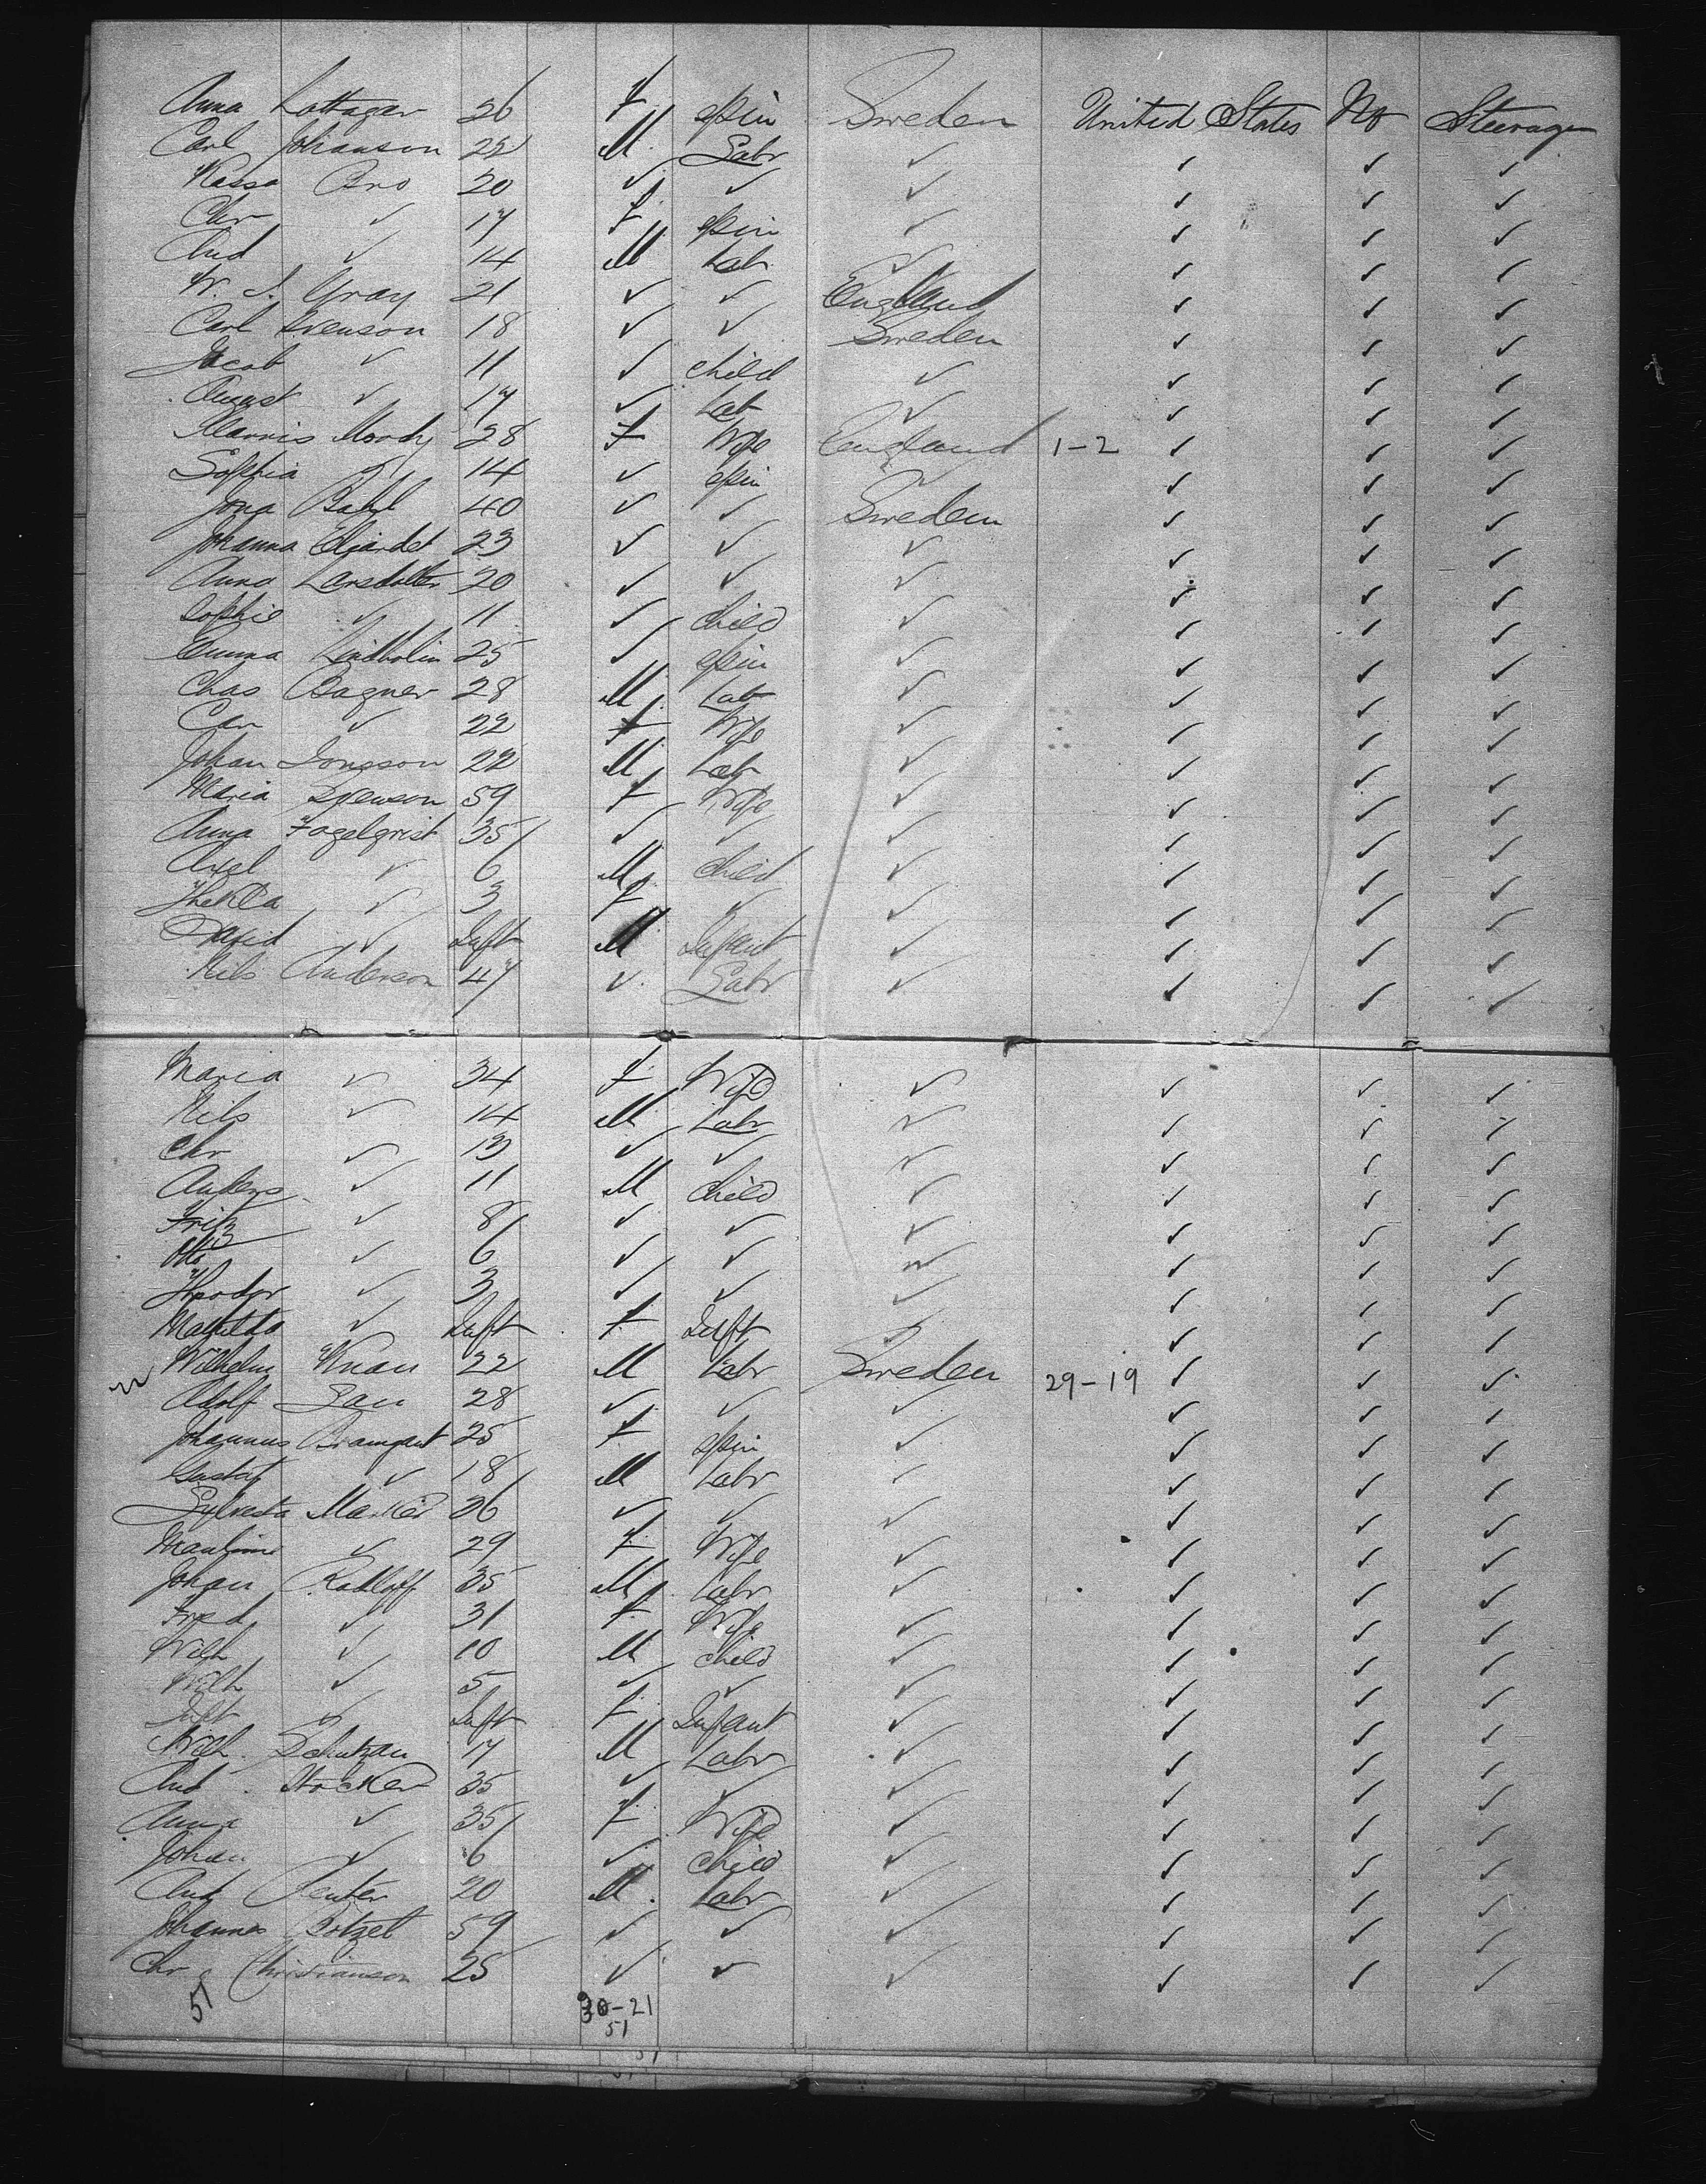 Anna Lottager 26 F Spin Sweden United States No Steerage
Carl Johanson 22 M Labr ✓ ✓ ✓ ✓
Kassa Bro 20 ✓ ✓ ✓ ✓ ✓ ✓
Chr ✓ 17 F Spin ✓ ✓ ✓ ✓
And ✓ 14 M Lab ✓ ✓ ✓ ✓
W. S. Gray 21 ✓ ✓ England ✓ ✓ ✓
Carl Svenson 18 ✓ ✓ Sweden ✓ ✓ ✓
Jacob ✓ 11 ✓ child ✓ ✓ ✓ ✓
August ✓ 17 ✓ Lab ✓ ✓ ✓ ✓
Moody 28 F Wife England 1-2 ✓ ✓ ✓
Sophia ✓ 14 ✓ Spin ✓ ✓ ✓ ✓
Jona 40 ✓ ✓ Sweden ✓ ✓ ✓
Johanna 23 ✓ ✓ ✓ ✓ ✓ ✓
Anna Larsdotter 20 ✓ ✓ ✓ ✓ ✓ ✓
Sophie ✓ 11 ✓ child ✓ ✓ ✓ ✓
Emma Lindholm 25 ✓ Spin ✓ ✓ ✓ ✓
Chas Bagner 28 M Lab ✓ ✓ ✓ ✓
Car ✓ 22 F Wife ✓ ✓ ✓ ✓
Johan Longson 22 M Lab ✓ ✓ ✓ ✓
Maria Svenson 59 F Wife ✓ ✓ ✓ ✓
Anna Fogelqrist 35 ✓ ✓ ✓ ✓ ✓ ✓
Axel ✓ 6 M child ✓ ✓ ✓ ✓
Thekla ✓ 3 F ✓ ✓ ✓ ✓ ✓
David ✓ Inft M Infant ✓ ✓ ✓ ✓
Nils Anderson 47 ✓ Labr ✓ ✓ ✓ ✓
Maria ✓ 34 F Wife ✓ ✓ ✓ ✓
Nils ✓ 14 M Labr ✓ ✓ ✓ ✓
Chr ✓ 13 ✓ ✓ ✓ ✓ ✓ ✓
Anders ✓ 11 M child ✓ ✓ ✓ ✓
Fritz ✓ 8 ✓ ✓ ✓ ✓ ✓ ✓
Otto ✓ 6 ✓ ✓ ✓ ✓ ✓ ✓
Theodor ✓ 3 ✓ ✓ ✓ ✓ ✓ ✓
Mathilda ✓ Inft F Inft ✓ ✓ ✓
Wilhelm Knau 22 M Labr Sweden 29-19 ✓ ✓ ✓
Adolf Sau 28 ✓ ✓ ✓ ✓ ✓ ✓
Johannus 25 F Spin ✓ ✓ ✓ ✓
Gustaf ✓ 18 M Labr ✓ ✓ ✓ ✓
Sylvesta 36 ✓ ✓ ✓ ✓ ✓ ✓
✓ 29 F Wife ✓ ✓ ✓ ✓
Johan Radloff 35 M Labr ✓ ✓ ✓ ✓
Fred ✓ 31 F Wife ✓ ✓ ✓ ✓
Wilh ✓ 10 M child ✓ ✓ ✓ ✓
Wilh ✓ 5 ✓ ✓ ✓ ✓ ✓ ✓
Inft ✓ Inft F Infant ✓ ✓ ✓ ✓
Wilh. Schutzau 17 M Labr ✓ ✓ ✓ ✓
And. Stocker 35 ✓ ✓ ✓ ✓ ✓ ✓
Anna ✓ 35 F Wife ✓ ✓ ✓ ✓
Johan ✓ 6 ✓ child ✓ ✓ ✓ ✓
And 20 M Labr ✓ ✓ ✓ ✓
Johannes Botzet 59 ✓ ✓ ✓ ✓ ✓ ✓
Chr Christianson 25 ✓ ✓ ✓ ✓ ✓ ✓
51 30-21
51